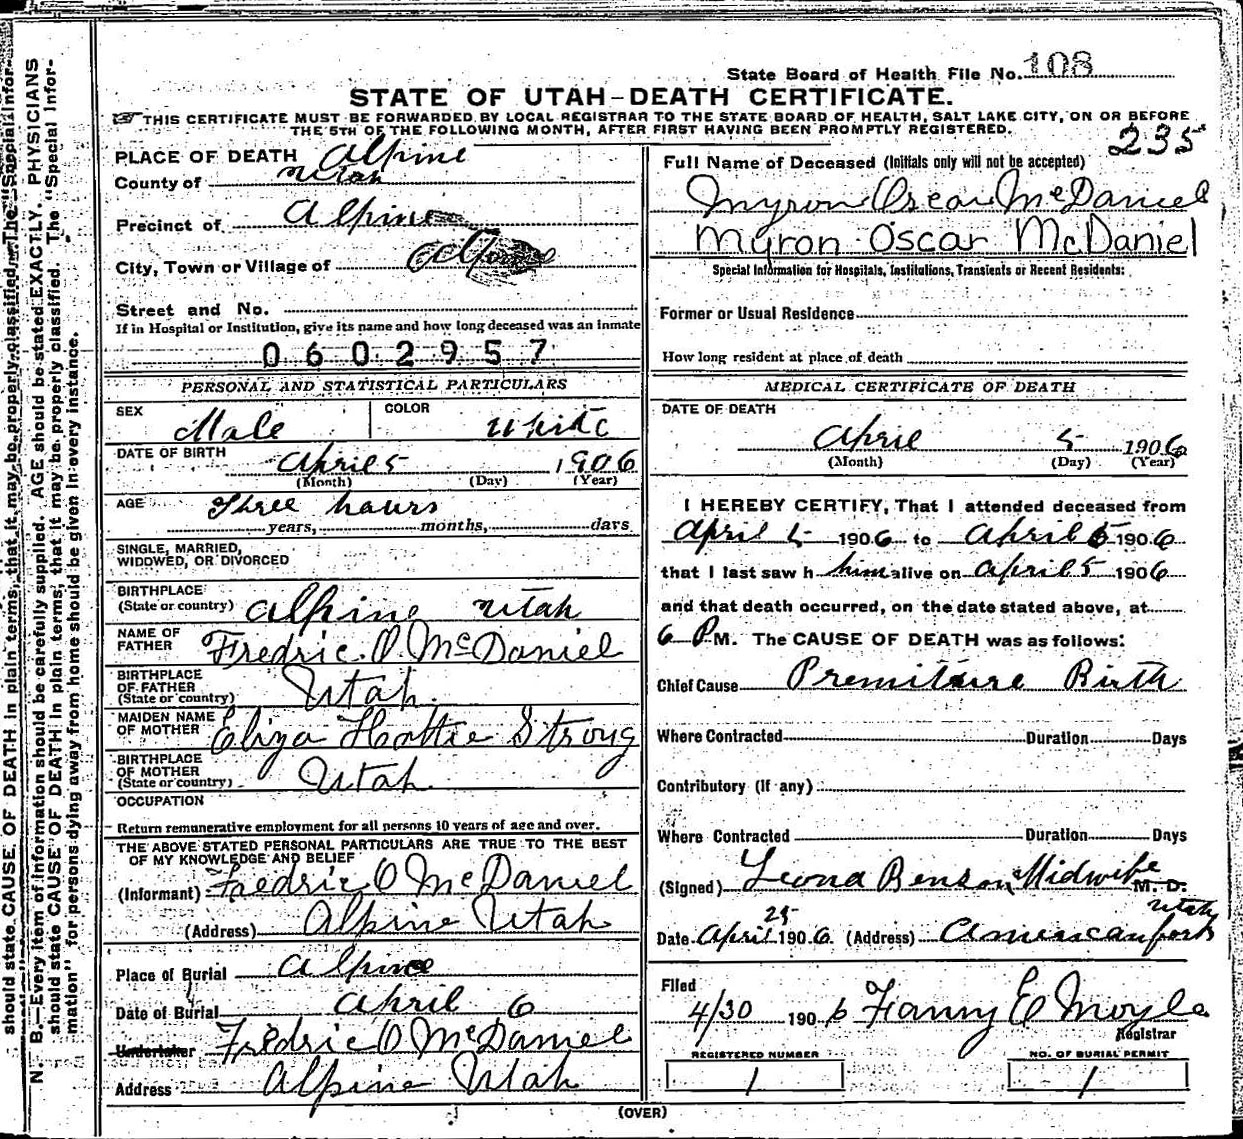 State Board of Health File No. 108
STATE OF UTAH-DEATH CERTIFICATE.
THIS CERTIFICATE MUST BE FORWARDED BY LOCAL REGISTRAR TO THE STATE BOARD OF HEALTH, SALT LAKE CITY, ON OR BEFORE
THE 5TH OF THE FOLLOWING MONTH, AFTER FIRST HAVING BEEN PROMPTLY REGISTERED.
235
PLACE OF DEATH Alpine
County of Utah
Precinct of Alpine
City, Town or Village of Alpine
Street and No.
If in Hospital or Institution, give its name and how long deceased was an inmate
0602957
PERSONAL AND STATISTICAL PARTICULARS
SEX Male COLOR White
DATE OF BIRTH April 5 1906
(Month) (Day) (Year)
AGE Three hours
years, months, days
SINGLE, MARRIED,
WIDOWED, OR DIVORCED
BIRTHPLACE
(State or country) Alpine Utah
NAME OF
FATHER Fredric. O. McDaniel
BIRTHPLACE
OF FATHER
(State or country) Utah.
MAIDEN NAME
OF MOTHER Eliza Hattie Strong
BIRTHPLACE
OF MOTHER
(State or country) Utah
OCCUPATION
Return remunerative employment for all persons 10 years of age and over.
THE ABOVE STATED PERSONAL PARTICULARS ARE TRUE TO THE BEST
OF MY KNOWLEDGE AND BELIEF
(Informant) Fredric O McDaniel
(Address) Alpine Utah
Place of Burial Alpine
Date of Burial April 6
Undertaker Fredric O McDaniel
Address Alpine Utah
Full Name of Deceased (Initials only will not be accepted)
Myron Oscar McDaniel
Myron Oscar McDaniel
Special Information for Hospitals, Institutions, Transients or Recent Residents:
Former or Usual Residence
How long resident at place of death
MEDICAL CERTIFICATE OF DEATH
DATE OF DEATH
April 5 1906
(Month) (Day) (Year)
I HEREBY CERTIFY, That I attended deceased from
April 5 1906 to April 5 1906
that I last saw h him alive on April 5 1906
and that death occurred, on the date stated above, at
6 P M. The CAUSE OF DEATH was as follows:
Chief Cause Premiture Birth
Where Contracted Duration Days
Contributory (If any)
Where Contracted Duration Days
(Signed) Leona Benson Midwife M. D.
Utah
Date April 25 1906. (Address) American fork
Filed
4/30 1906 Fanny E Moyle
Registrar
REGISTERED NUMBER NO. OF BURIAL PERMIT
1 1
(OVER)
N. B.—Every item of information should be carefully supplied. AGE should be stated EXACTLY. PHYSICIANS
should state CAUSE OF DEATH in plain terms, that it may be properly classified. The "Special Infor-
mation" for persons dying away from home should be given in every instance.
should state CAUSE OF DEATH in plain terms, that it may be properly classified. The "Special Infor-